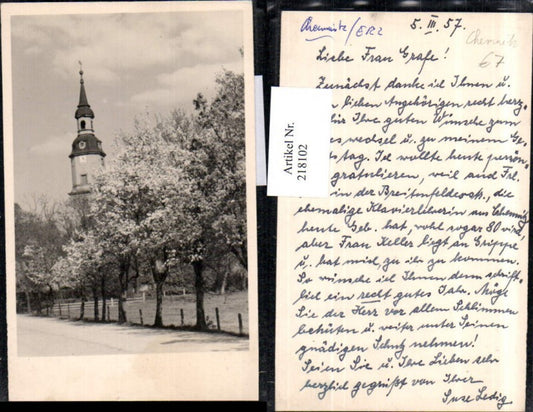 Chemnitz/ERZ
5. III. 57.
Chemnitz
67
Liebe Frau Grafe!
Zunächst danke ich Ihnen u.
lichen Angehörigen recht herz-
für Ihre guten Wünsche zum
wechsel u. zu meinem Ge-
tag. Ich wollte heute persön-
gratulieren, weil auch Frl.
in der Breitenfelderstr., die
ehemalige Klavierlehrerin aus Chemnitz,
heute Geb. hat, wohl sogar 80 wird,
aber Frau Keller liegt an Grippe
u. bat mich, zu ihr zu kommen.
So wünsche ich Ihnen denn schrift-
lich ein recht gutes Jahr. Möge
Sie der Herr vor allem Schlimmen
behüten u. weiter unter Seinen
gnädigen Schutz nehmen!
Seien Sie u. Ihre Lieben sehr
herzlich gegrüßt von Ihrer
Suse Ledig
Artikel Nr.
218102